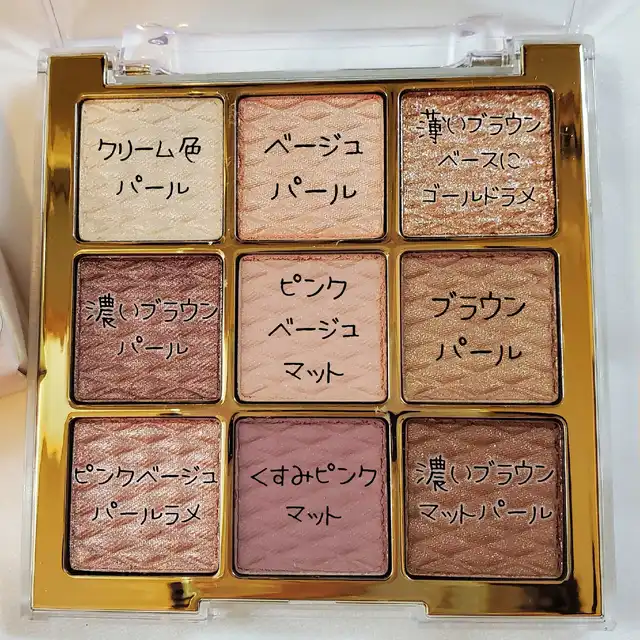 クリーム色
パール
ベージュ
パール
薄いブラウン
ベースに
ゴールドラメ
濃いブラウン
パール
ピンク
ベージュ
マット
ブラウン
パール
ピンクベージュ
パールラメ
くすみピンク
マット
濃いブラウン
マットパール